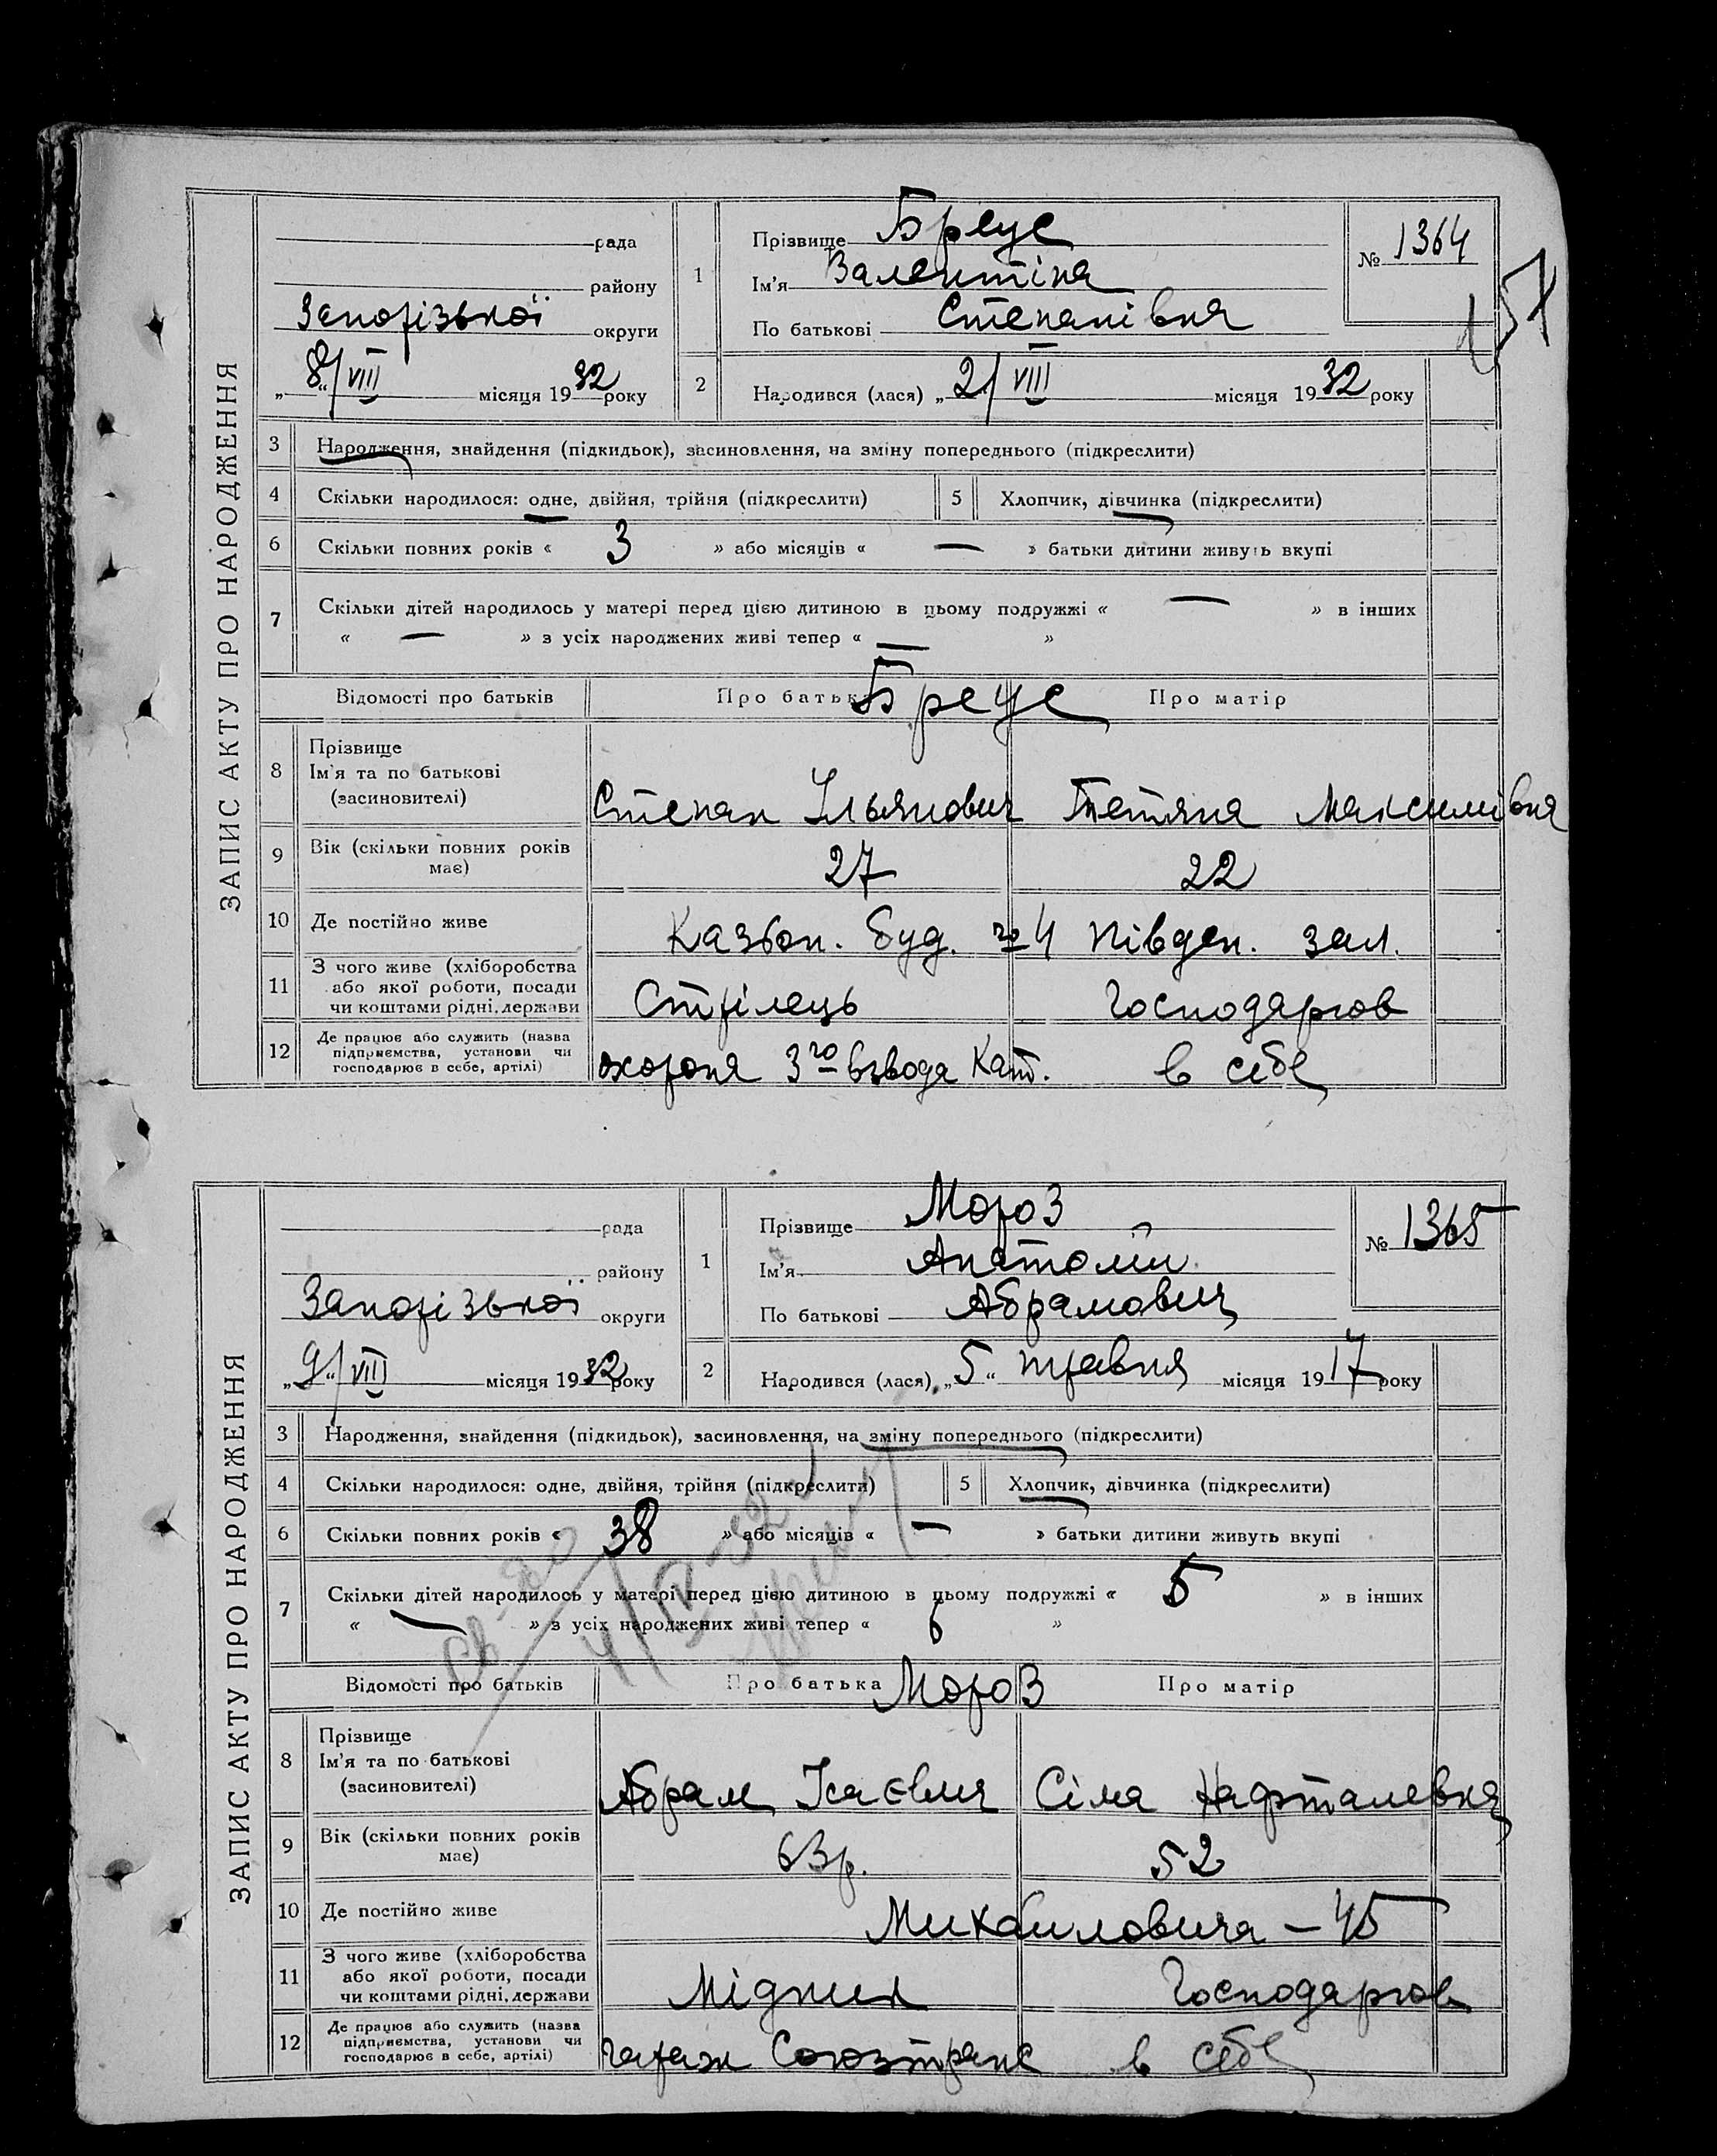 ЗАПИС АКТУ ПРО НАРОДЖЕННЯ
рада
району
Запорізької округи
„8“/VIII місяця 1932 року
1 Прізвище Бреус
Ім’я Валентіна
По батькові Степанівна
№ 1364
157
2 Народився (лася) „2/VIII місяця 1932 року
3 Народження, знайдення (підкидьок), засиновлення, на зміну попереднього (підкреслити)
4 Скільки народилося: одне, двійня, трійня (підкреслити) 5 Хлопчик, дівчинка (підкреслити)
6 Скільки повних років « 3 » або місяців « — » батьки дитини живуть вкупі
7 Скільки дітей народилось у матері перед цією дитиною в цьому подружжі « — » в інших
« — » з усіх народжених живі тепер « — »
Відомості про батьків Про батька Бреус Про матір
8 Прізвище
Ім’я та по батькові
(засиновителі)
Степан Ульянович Тетяна Максимівна
9 Вік (скільки повних років має) 27 22
10 Де постійно живе буд. №4 Півден. зал.
11 З чого живе (хліборобства
або якої роботи, посади
чи коштами рідні, держави
Стрілець Господарюв
12 Де працює або служить (назва
підприємства, установи чи
господарює в себе, артілі)
охорона 3го взвода в себе
ЗАПИС АКТУ ПРО НАРОДЖЕННЯ
рада
району
Запорізької округи
„9“/VIII місяця 1932 року
1 Прізвище Мороз
Ім’я Анатолій
По батькові Абрамович
№ 1365
2 Народився (лася) „5“ травня місяця 1917 року
3 Народження, знайдення (підкидьок), засиновлення, на зміну попереднього (підкреслити)
4 Скільки народилося: одне, двійня, трійня (підкреслити) 5 Хлопчик, дівчинка (підкреслити)
6 Скільки повних років « 38 » або місяців « — » батьки дитини живуть вкупі
7 Скільки дітей народилось у матері перед цією дитиною в цьому подружжі « 5 » в інших
« — » з усіх народжених живі тепер « 6 »
Відомості про батьків Про батька Мороз Про матір
8 Прізвище
Ім’я та по батькові
(засиновителі)
Абрам Ісаєвич Сіма Нафталевна
9 Вік (скільки повних років має) 63р. 52
10 Де постійно живе Михайловича – 45
11 З чого живе (хліборобства
або якої роботи, посади
чи коштами рідні, держави
Мідник Господарюв
12 Де працює або служить (назва
підприємства, установи чи
господарює в себе, артілі)
гараж Союзтранс в себе